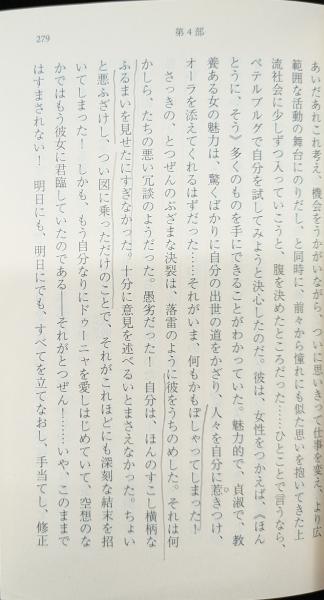 279
第4部
あいだあれこれ考え、機会をうかがいながら、ついに思いきって仕事を変え、より広
範囲な活動の舞台にのりだし、と同時に、前々から憧れにも似た思いを抱いてきた上
流社会に少しずつ入っていこうと、腹を決めたところだった……ひとことで言うなら、
ペテルブルグで自分を試してみようと決心したのだ。彼は、女性をつかえば、《ほん
とうに、そう》多くのものを手にできることがわかっていた。魅力的で、貞淑で、教
養ある女の魅力は、驚くばかりに自分の出世の道をかざり、人々を自分に惹きつけ、
オーラを添えてくれるはずだった……それがいま、何もかもぽしゃってしまった！
さっきの、とつぜんのぶざまな決裂は、落雷のように彼をうちのめした。それは何
かしら、たちの悪い冗談のようだった。愚劣だった！　自分は、ほんのすこし横柄な
ふるまいを見せたにすぎなかった。十分に意見を述べるいとまさえなかった。ちょい
と悪ふざけし、つい図に乗っただけのことで、それがこれほどにも深刻な結末を招
いてしまった！　しかも、もう自分なりにドゥーニャを愛しはじめていて、空想のな
かではもう彼女に君臨していたのである――それがとつぜん！……いや、このままで
はすまされない！　明日にも、明日にでも、すべてを立てなおし、手当てし、修正